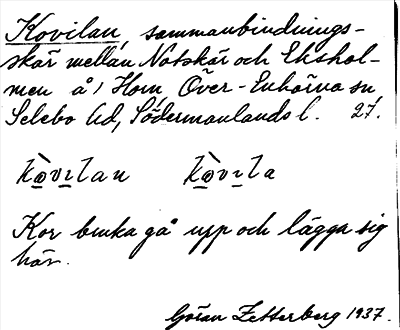 Kovilan, sammanbindnings-
skär mellan Notskär och Ekshol-
men å, Horn, Över-Enhörna sn
Selebo hd, Södermanlands l. 27.
kòvılan kòvıla
Kor bruka gå upp och lägga sig
här.
Göran Zetterberg 1937.